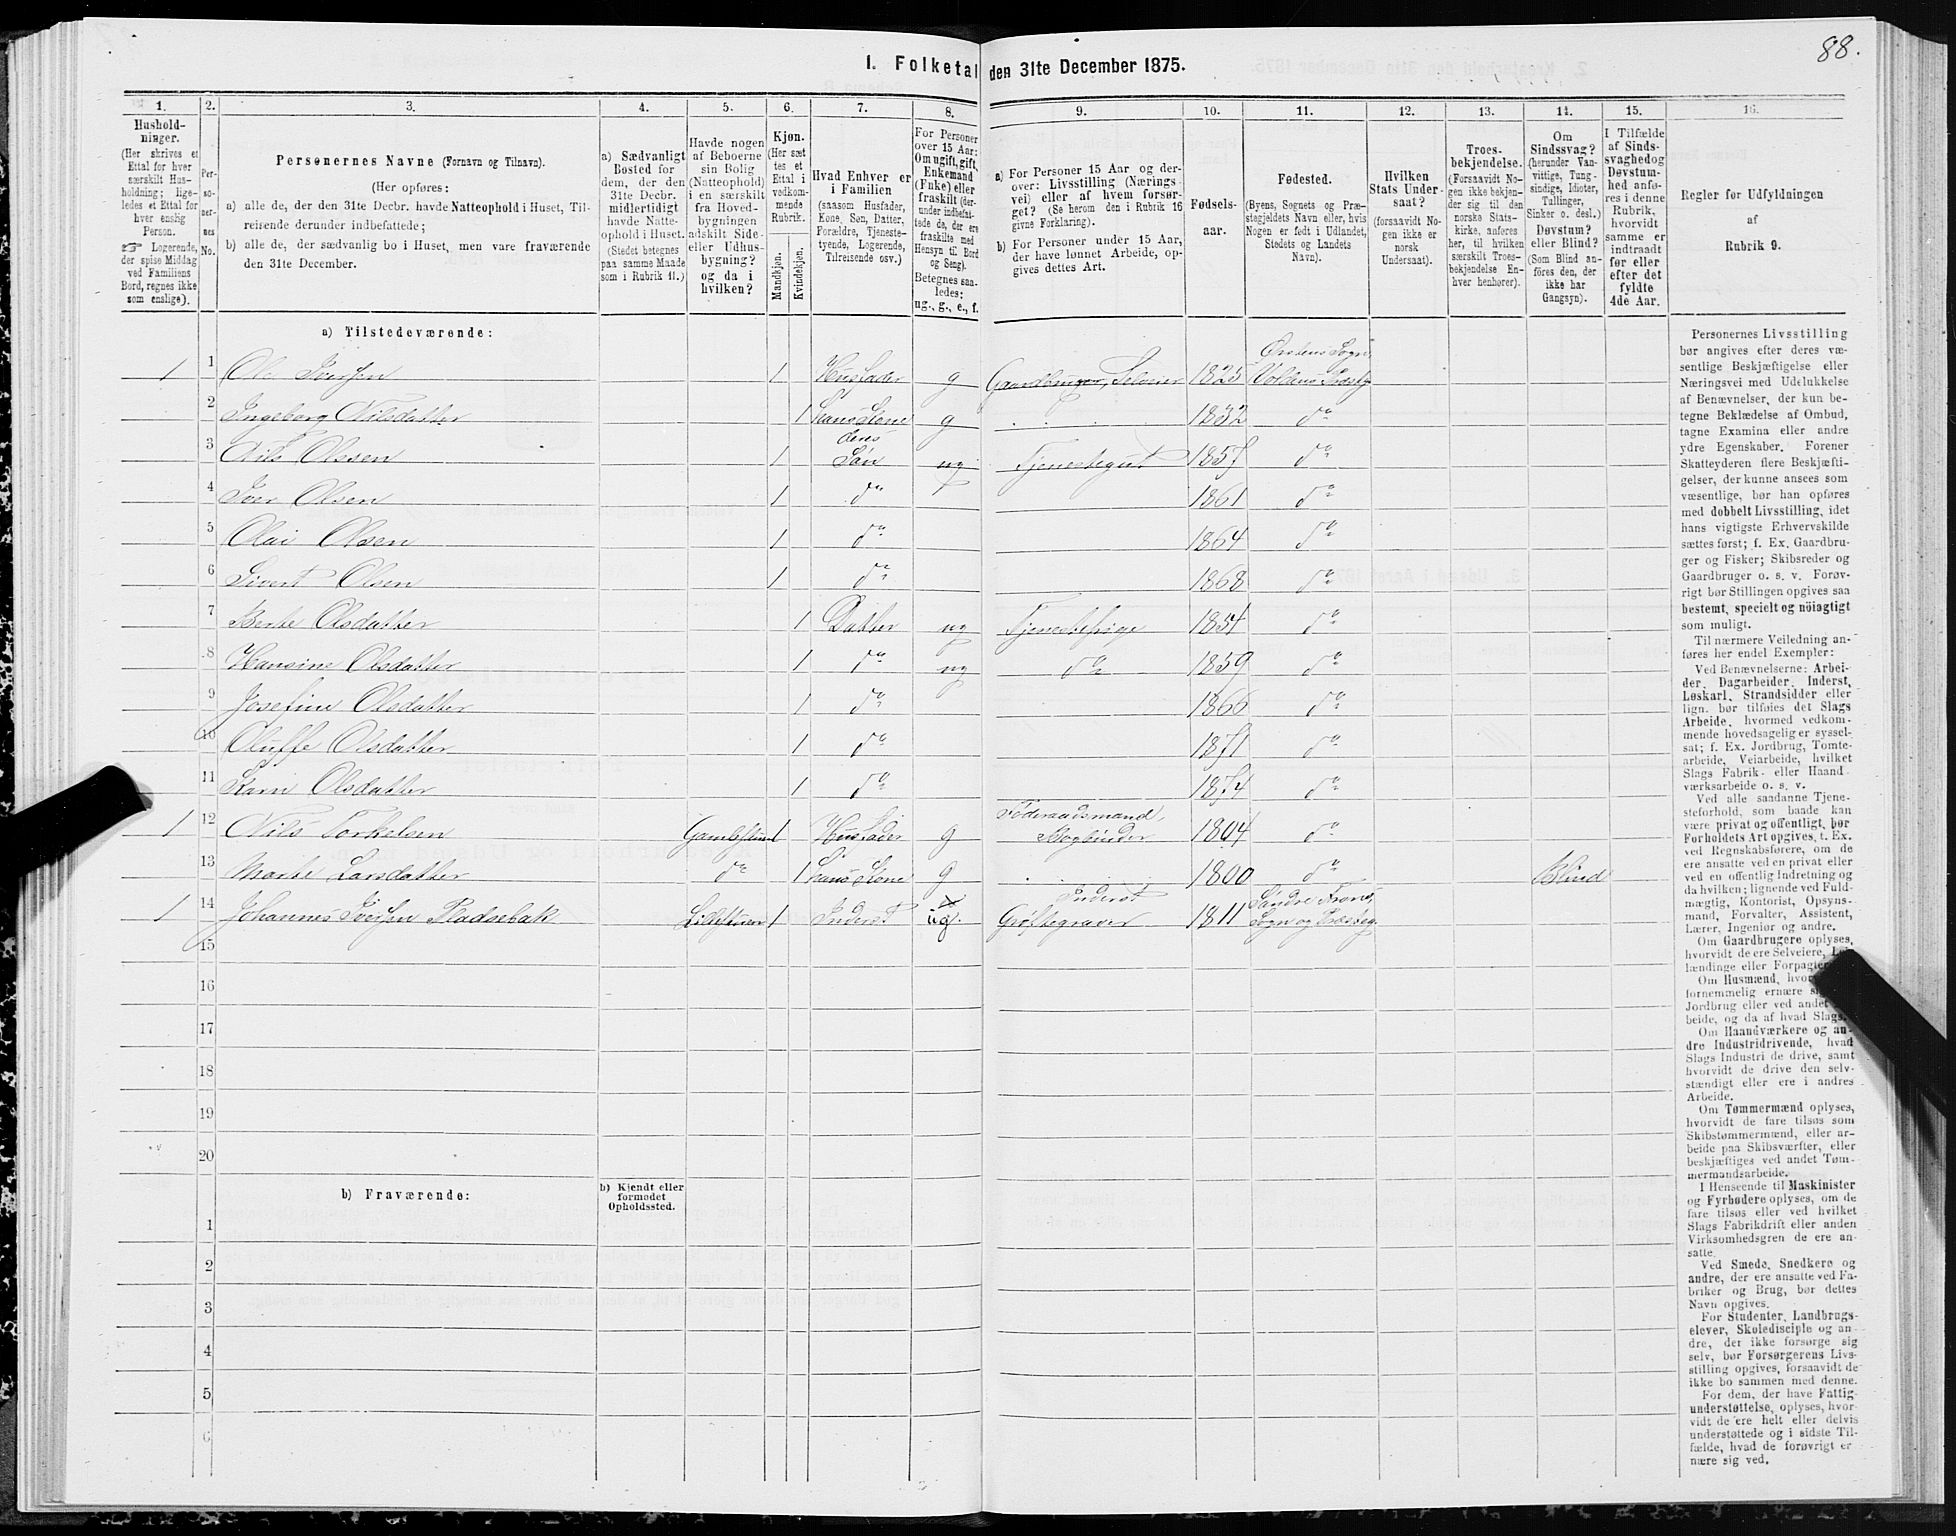 88.
1. Folketal den 31te December 1875.
1. 2. 3. 4. 5. 6. 7. 8. 9. 10. 11. 12. 13. 14. 15. 16.
Hushold-
ninger.
(Her skrives et
Ettal for hver
særskilt Hus-
holdning; lige-
ledes et Ettal for
hver enslig
Person.
☞ Logerende,
der spise Middag
ved Familiens
Bord, regnes ikke
som enslige).
Per-
so-
ner-
nes
No.
Personernes Navne (Fornavn og Tilnavn).
(Her opføres:
a) alle de, der den 31te Decbr. havde Natteophold i Huset, Til-
reisende derunder indbefattede;
b) alle de, der sædvanlig bo i Huset, men vare fraværende
den 31te December.
a) Sædvanligt
Bosted for
dem, der den
31te Decbr.
midlertidigt
havde Natte-
ophold i Huset.
(Stedet betegnes
paa samme Maade
som i Rubrik 11.)
Havde nogen
af Beboerne
sin Bolig
(Natteophold)
i en særskilt
fra Hoved-
bygningen
adskilt Side-
eller Udhus-
bygning?
og da i
hvilken?
Kjøn.
(Her sæt
tes et
Ettal i
vedkom-
mende
Rubrik.
Mandkjøn.
Kvindekjøn.
Hvad Enhver er
i Familien
(saasom Husfader,
Kone, Søn, Datter,
Forældre, Tjeneste-
tyende, Logerende,
Tilreisende osv.)
For Personer
over 15 Aar:
Om ugift, gift,
Enkemand
(Enke) eller
fraskilt (der-
under indbefat-
tede de, der ere
fraskilte med
Hensyn til Bord
og Seng).
Betegnes saa-
ledes:
ug., g., e., f.
a) For Personer 15 Aar og der-
over: Livsstilling (Nærings-
vei) eller af hvem forsør-
get? (Se herom den i Rubrik 16
givne Forklaring).
b) For Personer under 15 Aar,
der have lønnet Arbeide, op-
gives dettes Art.
Fødsels-
aar.
Fødested.
(Byens, Sognets og Præ-
stegjeldets Navn eller, hvis
Nogen er født i Udlandet,
Stedets og Landets
Navn).
Hvilken
Stats Under-
saat?
(forsaavidt No-
gen ikke er
norsk
Undersaat).
Troes-
bekjendelse.
(Forsaavidt No-
gen ikke bekjen-
der sig til den
norske Stats-
kirke, anføres
her, til hvilken
særskilt Troes-
bekjendelse En-
hver henhører).
Om
Sindssvag?
(herunder Van-
vittige, Tung-
sindige, Idioter,
Tullinger,
Sinker o. desl.)
Døvstum?
eller Blind?
(Som Blind an-
føres den, der
ikke har
Gangsyn).
I Tilfælde
af Sinds-
svaghed og
Døvstum-
hed anfø-
res i denne
Rubrik,
hvorvidt
samme er
indtraadt
før eller
efter det
fyldte
4de Aar.
Regler før Udfyldningen
af
Rubrik 9.
a) Tilstedeværende:
1 1 Ole Iversen 1 Husfader g Gaardbruger, Selveier 1825 Ørstens Sogn, Voldens Præstg
2 Ingeborg Nilsdatter 1 hans Kone g 1832 do
3 Nils Olssen 1 deres Søn ug Tjenestegut 1857 do
4 Iver Olsen 1 do 1861 do
5 Olai Olsen 1 do 1864 do
6 Sivert Olsen 1 do 1868 do
7 Berte Olsdatter 1 Datter ug Tjenestepige 1854 do
8 Hansine Olsdatter 1 do ug do 1859 do
9 Josefine Olsdatter 1 do 1866 do
10 Oluffe Olsdatter 1 do 1871 do
11 Karn Olsdatter 1 do 1874 do
1 12 Nils Torkelsen Gamlestuen 1 Husfader g Føderaadsmand, Bogbinder 1804 do
13 Marte Larsdatter do 1 hans Kone g 1800 do Blind
1 14 Johannes Iversen Pladsebak Lillestuen 1 Inderst ug. Inderst Grøftegraver 1811 Søndre Frons Sogn og Præsteg.
15
16
17
18
19
20
b) Fraværende:
b) Kjendt eller
formodet
Opholdssted.
1
2
3
4
5
6
Personernes Livsstilling
bør angives efter deres væ-
sentlige Beskjæftigelse eller
Næringsvei med Udelukkelse
af Benævnelser, der kun be-
tegne Beklædelse af Ombud,
tagne Examina eller andre
ydre Egenskaber. Forener
Skatteyderen flere Beskjæfti-
gelser, der kunne ansees som
væsentlige, bør han opføres
med dobbelt Livsstilling, idet
hans vigtigste Erhvervskilde
sættes først; f. Ex. Gaardbru-
ger og Fisker; Skibsreder og
Gaardbruger o. s. v. Forøv-
rigt bør Stillingen opgives saa
bestemt, specielt og nöiagtigt
som muligt.
Til nærmere Veiledning an-
føres her endel Exempler:
Ved Benævnelserne: Arbei-
der, Dagarbeider, Inderst,
Løskarl, Strandsidder eller
lign. bør tilføies det Slags
Arbeide, hvormed vedkom-
mende hovedsagelig er syssel-
sat; f. Ex. Jordbrug, Tomte-
arbeide, Veiarbeide, hvilket
Slags Fabrik- eller Haand-
værksarbeide o. s. v.
Ved alle saadanne Tjene-
steforhold, som baade kan
være privat og offentligt, bør
Forholdets Art opgives, t. Ex.
ved Regnskabsførere, om de
ere ansatte ved en privat eller
ved en offentlig Indretning og
da hvilken; lignende ved Fuld-
mægtig, Kontorist, Opsyns-
mand, Forvalter, Assistent,
Lærer, Ingeniør og andre.
Om Gaardbrugere oplyses,
hvorvidt de ere Selveiere, Lei-
lændinge eller Forpagtere.
Om Husmænd, hvor
fornemmelig ernære
Jordbrug eller ved andet Ar-
beide, og da af hvad Slags.
Om Haandværkere og an-
dre Industridrivende, hvad
Slags Industri de drive, samt
hvorvidt de drive den selv-
stændigt eller ere i andres
Arbeide.
Om Tømmermænd oplyses,
hvorvidt de fare tilsøs som
Skibstømmermænd, eller ar-
beide paa Skibsværfter, eller
beskjæftiges ved andet Tøm-
mermandsarbeide.
I Henseende til Maskinister
og Fyrbødere oplyses, om de
fare tilsøs eller ved hvilket
Slags Fabrikdrift eller anden
Virksomhedsgren de ere an-
satte.
Ved Smede, Snedkere og
andre, der ere ansatte ved Fa-
briker og Brug, bør dettes
Navn opgives.
For Studenter, Landbrugs-
elever, Skoledisciple og an-
dre, der ikke forsørge sig
selv, bør Forsørgerens Livs-
stilling opgives, forsaavidt de
ikke bo sammen med denne.
For dem, der have Fattig-
understøttelse, oplyses, hvor-
vidt de ere helt eller delvis
understøttede og i sidste Til-
fælde, hvad de forøvrigt er
nære sig ved.